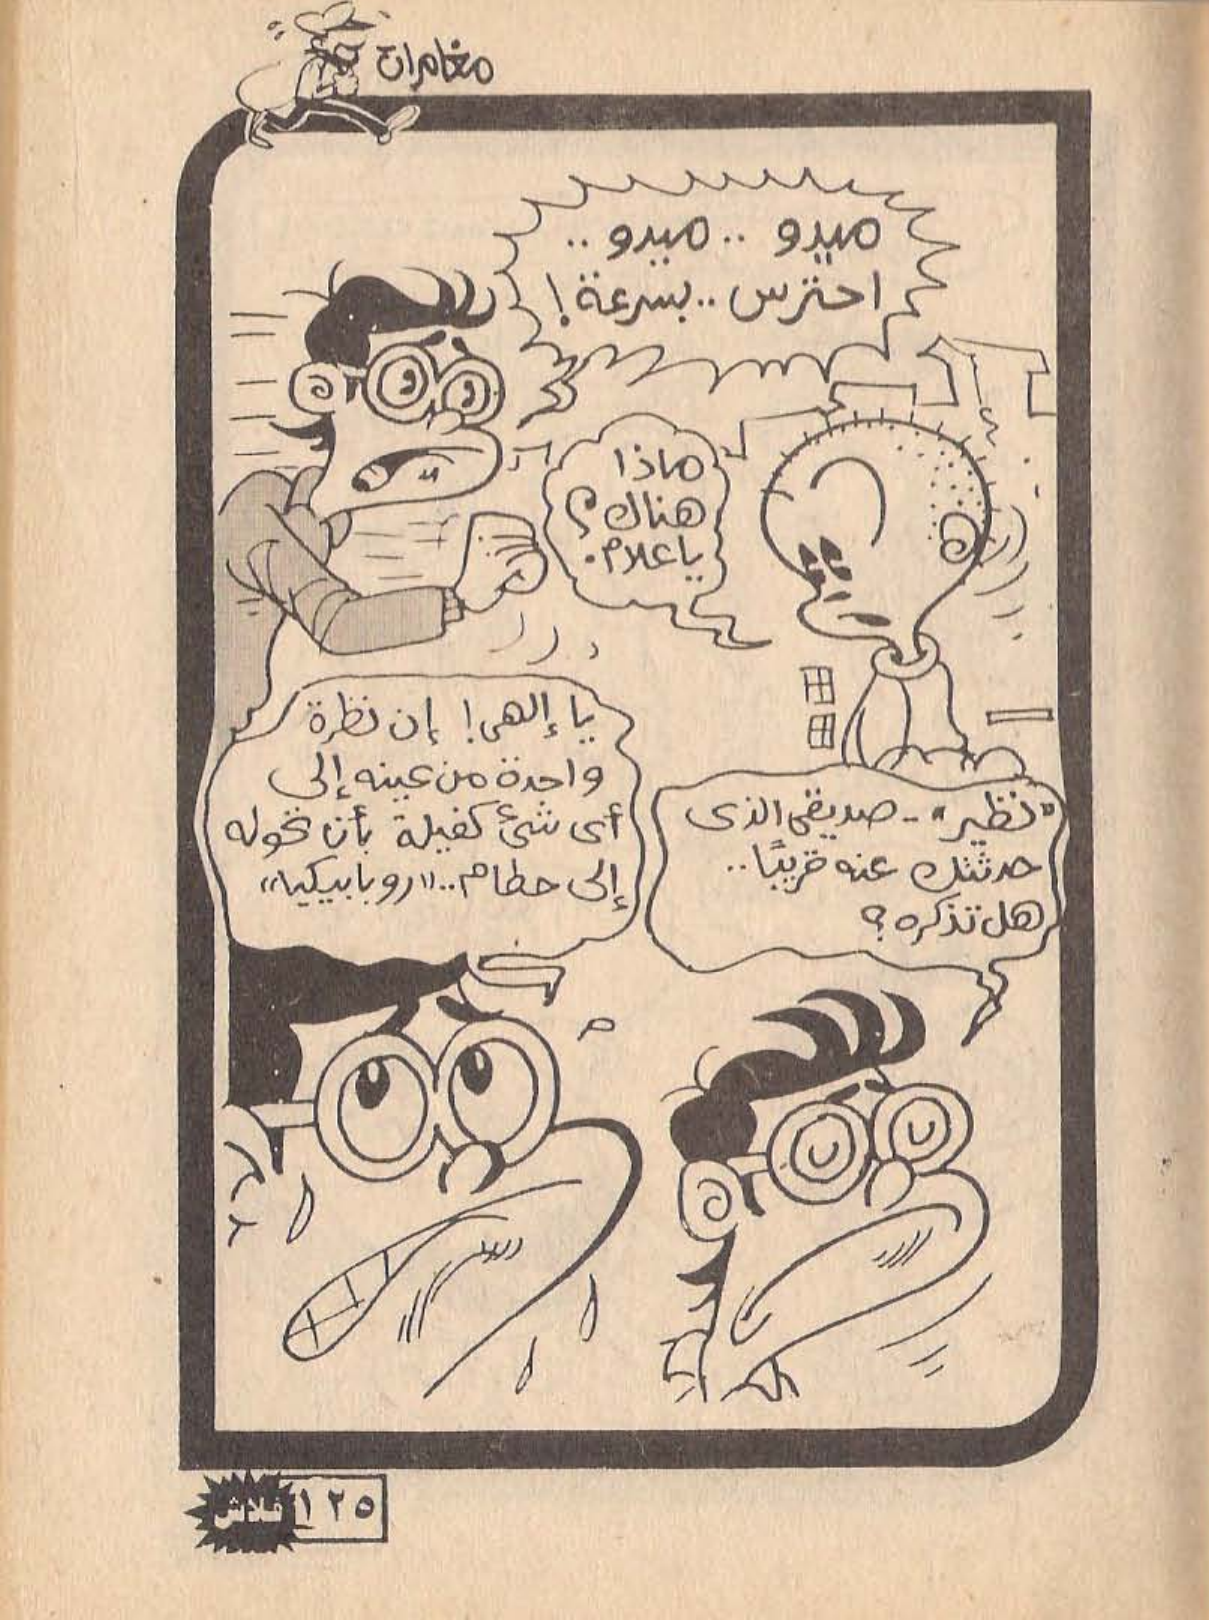 مغامرات
ميدو .. ميدو ..
احترس .. بسرعة !
ماذا
هناك ؟
يا علام .
"نظير" - صديقى الذى
حدثتك عنه قريبًا ..
هل تذكره ؟
يا إلهى ! إن نظرة
واحدة من عينه إلى
أى شئ كفيلة بأن تحوله
إلى حطام .. "روبابيكيا"
١٢٥ فلاش